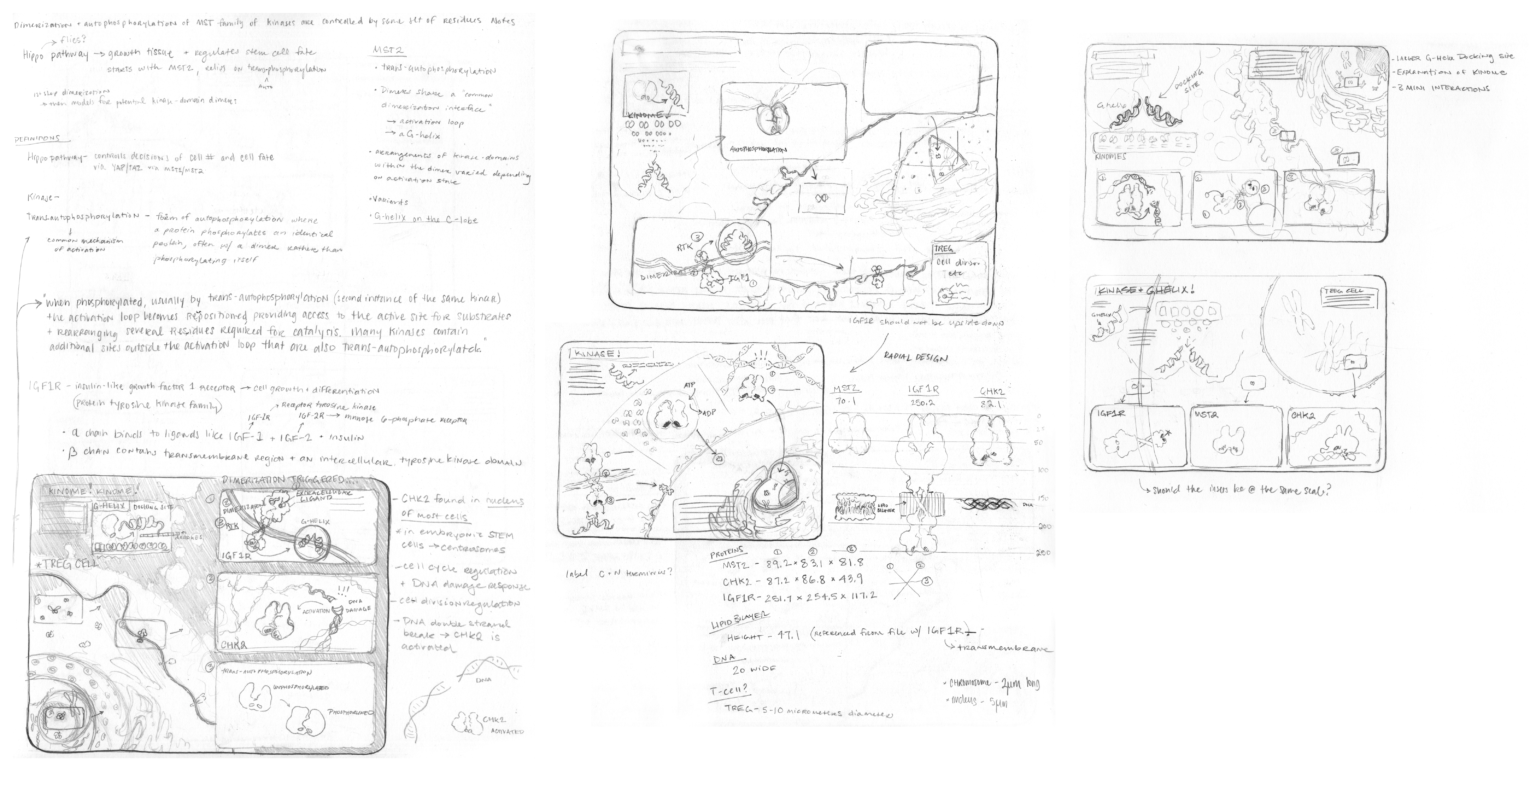 Dimerization + autophosphorylation of MST family of kinases are controlled by same set of residues Notes
→ flies?
Hippo pathway → growth tissue + regulates stem cell fate
starts with MST2, relies on transphosphorylation
auto
DEFINITIONS
Hippo pathway - controls decisions of cell # and cell fate
via YAP/TAZ via MST1/MST2
Kinase -
Transautophosphorylation - form of autophosphorylation where
a protein phosphorylates an identical
protein, often w/ a dimer rather than
phosphorylating itself
common mechanism
of activation
MST2
• trans-autophosphorylation
• Dimers share a "common
dimerization interface"
→ activation loop
→ αG-helix
• arrangements of kinase domains
within the dimer varied depending
on activation state
• Variants
• G-helix on the C-lobe
"When phosphorylated, usually by trans-autophosphorylation (second instance of the same kinase)
the activation loop becomes repositioned providing access to the active site for substrates
+ rearranging several residues required for catalysis. Many kinases contain
additional sites outside the activation loop that are also trans-autophosphorylated."
IGF1R - insulin-like growth factors 1 receptor → cell growth + differentiation
(protein tyrosine kinase family)
→ Receptor tyrosine kinase
IGF-1R
IGF-2R →
• α chain binds to ligands like IGF-1 + IGF-2 + insulin
• β chain contains transmembrane region + an intercellular tyrosine kinase domain
KINOME! KINOME!
G-HELIX
DOCKING SITE
* TREG CELL
DIMERIZATION TRIGGERED...
①
EXTRACELLULAR
LIGANDS
DIMERIZATION
RTK
G-HELIX
IGF1R
②
!!!
ACTIVATION
DNA
DAMAGE
CHK2
③
TRANS-AUTOPHOSPHORYLATION
UNPHOSPHORYLATED
PHOSPHORYLATED
- CHK2 found in nucleus
of most cells
* in embryonic STEM
cells → centrosomes
- cell cycle regulation
+ DNA damage response
- cell division regulation
- DNA double strand
break → CHK2 is
activated
DNA
CHK2
ACTIVATED
KINOME!
AUTOPHOSPHORYLATION
RTK
③
DIMERIZES
IGF1 ①
TREG
cell division
etc
IGF1R should not be upside down
KINASE!
ATP
ADP
!!!
label C + N terminus?
RADIAL DESIGN
MST2
70.1
IGF1R
250.2
CHK2
82.1
0
50
100
150
200
250
LIPID
BILAYER
DNA
PROTEINS ① ② ③
MST2 - 89.2 × 83.1 × 81.8
CHK2 - 87.2 × 86.8 × 43.9
IGF1R - 251.7 × 254.5 × 117.2
① ② ③
LIPID BILAYER
HEIGHT - 47.1 (referenced from file w/ IGF1R)
↳ transmembrane
DNA
20 WIDE
T-cell?
TREG - 5-10 micrometers diameter
• chromosome - 2μm long
• nucleus - 5μm
G helix
DOCKING
SITE
KINOMES
① ② ③
- Larger G-Helix Docking site
- Explanation of Kinome
- 3 MINI INTERACTIONS
KINASE + GHELIX!
TREG CELL
GHELIX
IGF1R
MST2
CHK2
↳ should the insets be @ the same scale?